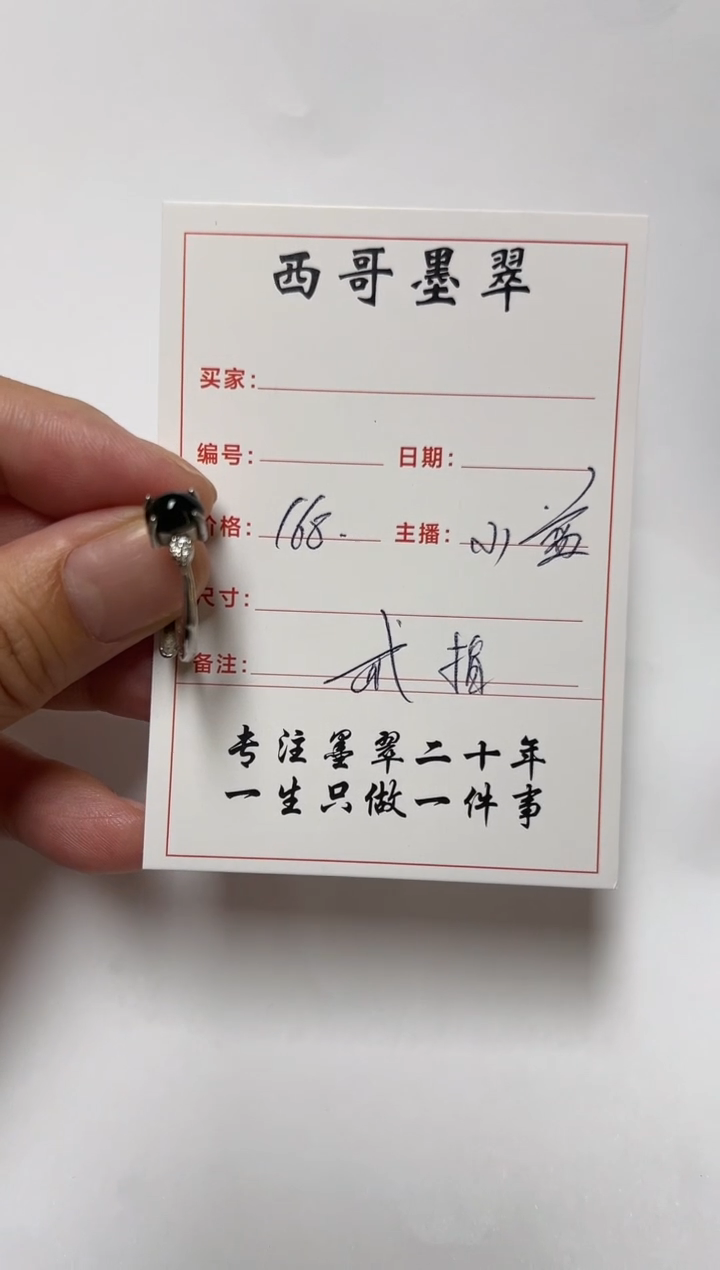 西哥墨翠
买家:
编号: 日期:
价格: 168. 主播: 小
尺寸:
备注: 戒指
专注墨翠二十年
一生只做一件事